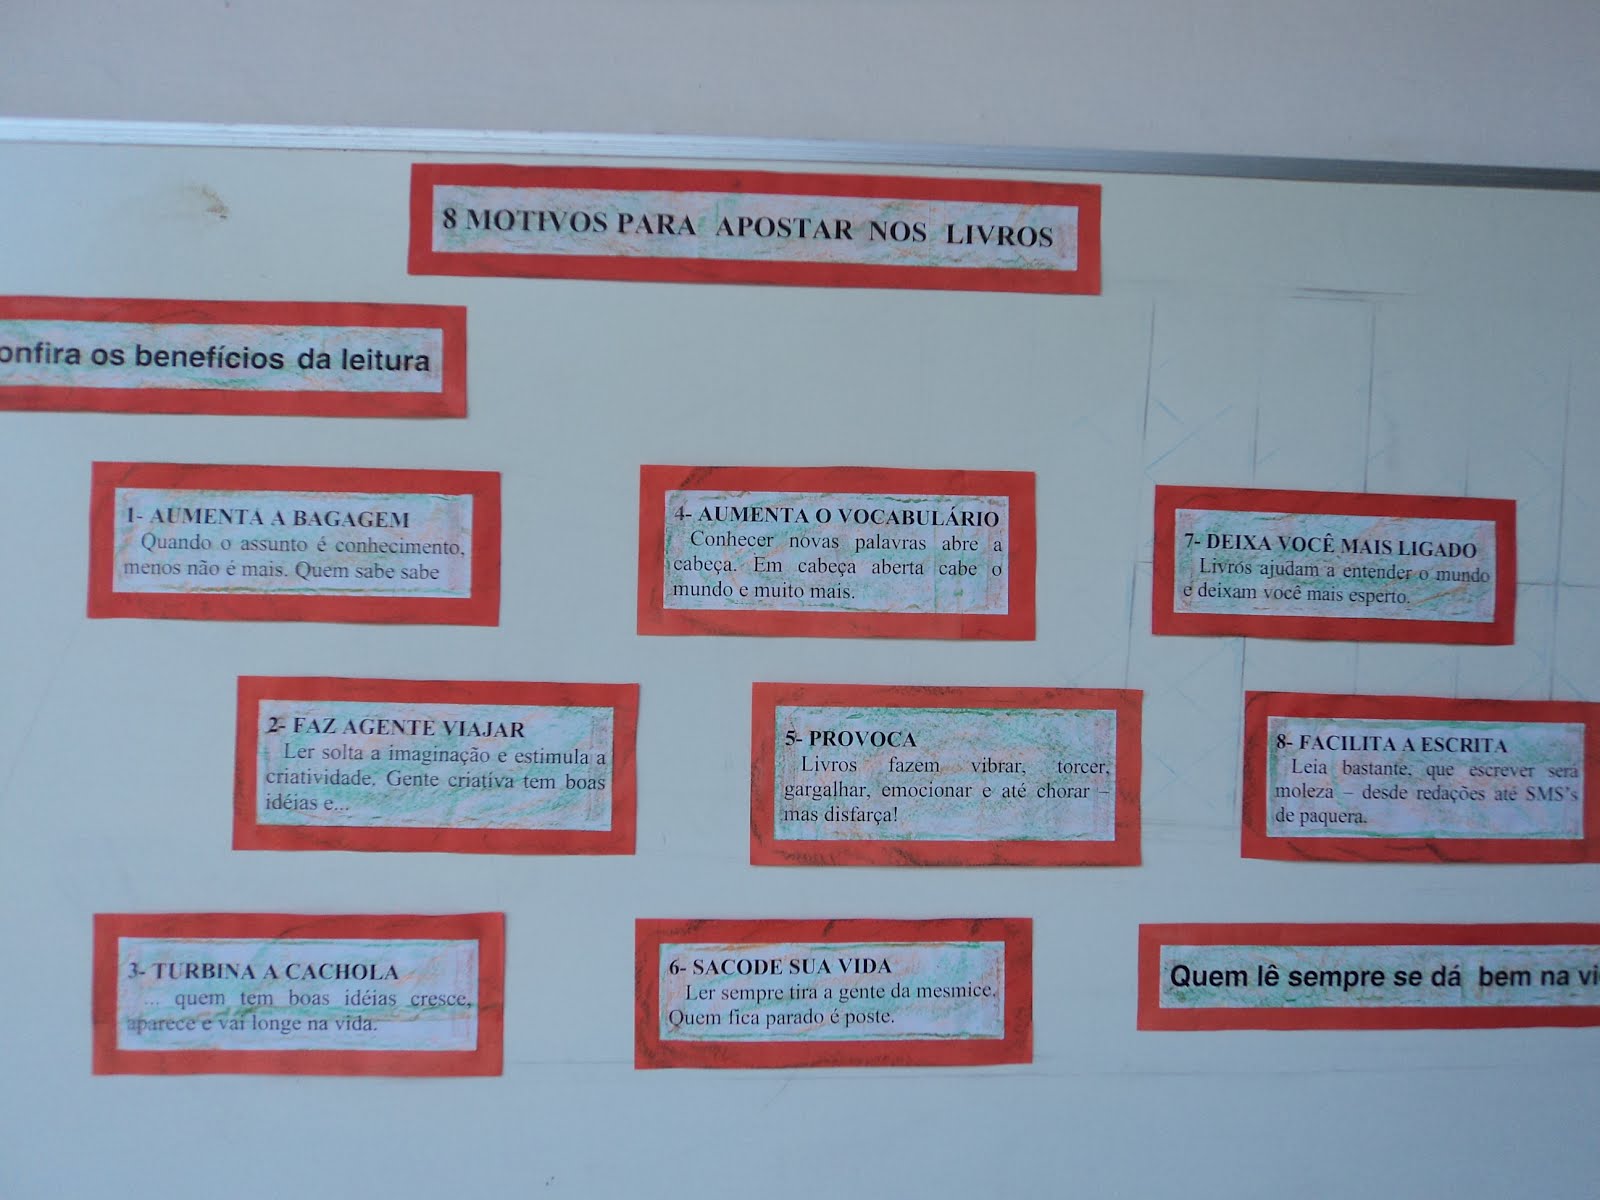 8 MOTIVOS PARA APOSTAR NOS LIVROS
onfira os benefícios da leitura
1- AUMENTA A BAGAGEM
Quando o assunto é conhecimento,
menos não é mais. Quem sabe sabe
2- FAZ AGENTE VIAJAR
Ler solta a imaginação e estimula a
criatividade. Gente criativa tem boas
idéias e...
3- TURBINA A CACHOLA
... quem tem boas idéias cresce,
aparece e vai longe na vida.
4- AUMENTA O VOCABULÁRIO
Conhecer novas palavras abre a
cabeça. Em cabeça aberta cabe o
mundo e muito mais.
5- PROVOCA
Livros fazem vibrar, torcer,
gargalhar, emocionar e até chorar –
mas disfarça!
6- SACODE SUA VIDA
Ler sempre tira a gente da mesmice.
Quem fica parado é poste.
7- DEIXA VOCÊ MAIS LIGADO
Livros ajudam a entender o mundo
e deixam você mais esperto.
8- FACILITA A ESCRITA
Leia bastante, que escrever sera
moleza – desde redações até SMS's
de paquera.
Quem lê sempre se dá bem na vi